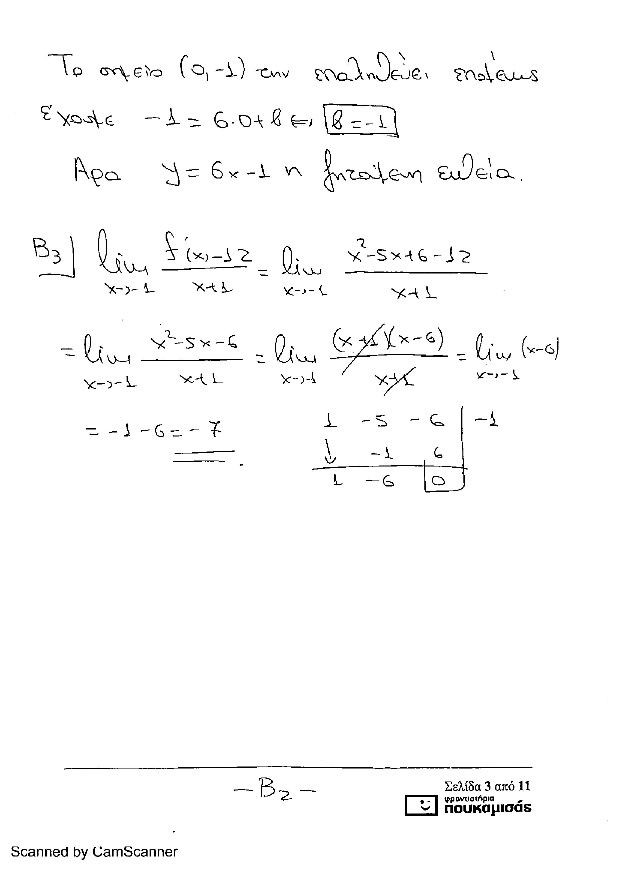 Το σημείο (0,-1) την επαληθεύει επομένως
έχουμε -1 = 6·0+β ⇔ β=-1
Άρα y = 6x-1 η ζητούμενη ευθεία.
B3] lim x→-1 f'(x)-12 / x+1 = lim x→-1 x²-5x+6-12 / x+1
= lim x→-1 x²-5x-6 / x+1 = lim x→-1 (x+1)(x-6) / x+1 = lim x→-1 (x-6)
= -1-6 = -7.
1 -5 -6 | -1
↓ -1 6
1 -6 0
-B2-
Σελίδα 3 από 11
φροντιστήρια
πουκαμισάς
Scanned by CamScanner